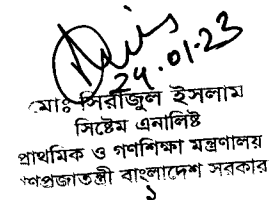 24.01.23
মোঃ সিরাজুল ইসলাম
সিষ্টেম এনালিষ্ট
প্রাথমিক ও গণশিক্ষা মন্ত্রণালয়
গণপ্রজাতন্ত্রী বাংলাদেশ সরকার